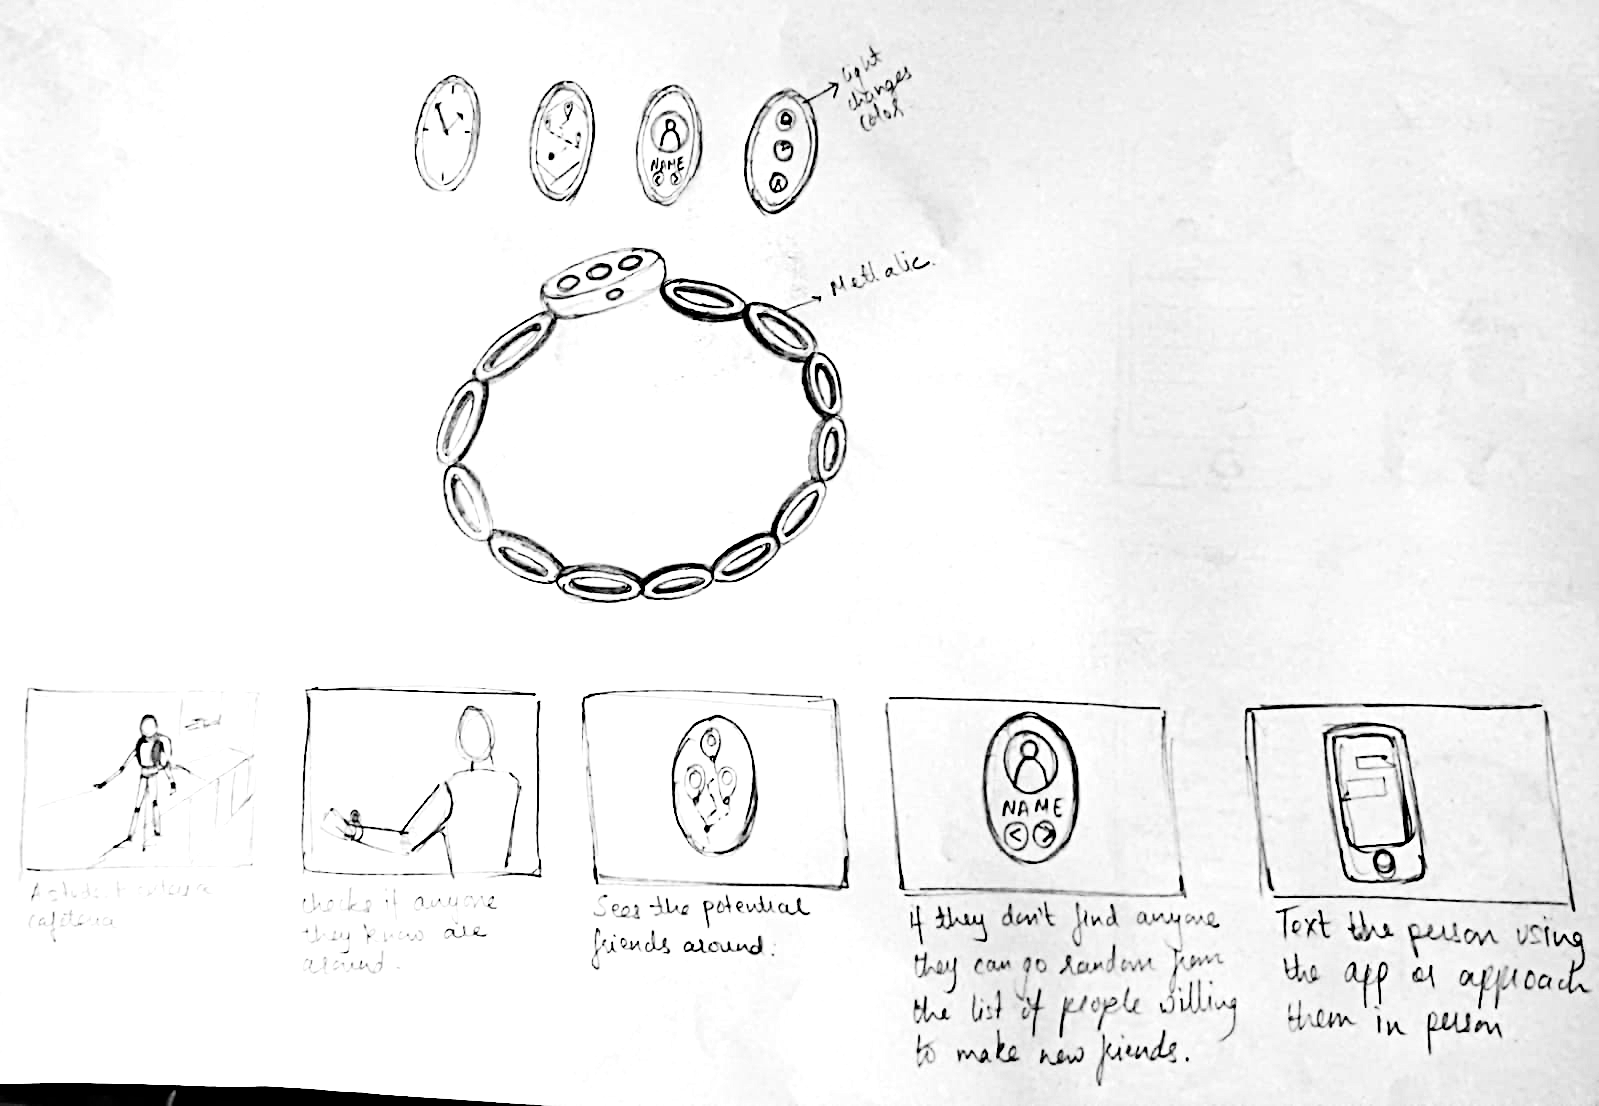 light
changes
color
NAME
Metlalic.
A student enters a
cafeteria
checks if anyone
they know are
around.
Sees the potential
friends around.
NAME
If they don't find anyone
they can go random from
the list of people willing
to make new friends.
Text the person using
the app or approach
them in person